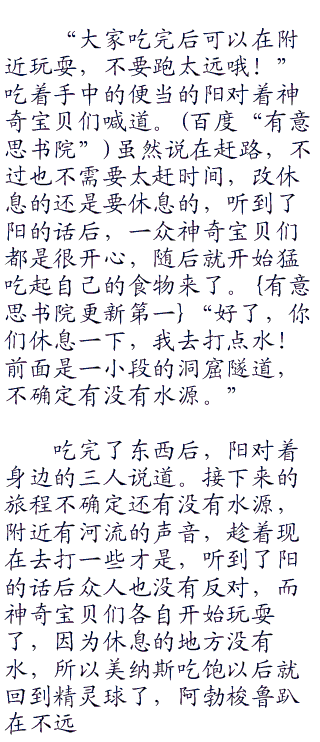 “大家吃完后可以在附
近玩耍，不要跑太远哦！”
吃着手中的便当的阳对着神
奇宝贝们喊道。(百度“有意
思书院”)虽然说在赶路，不
过也不需要太赶时间，改休
息的还是要休息的，听到了
阳的话后，一众神奇宝贝们
都是很开心，随后就开始猛
吃起自己的食物来了。{有意
思书院更新第一}“好了，你
们休息一下，我去打点水！
前面是一小段的洞窟隧道，
不确定有没有水源。”
吃完了东西后，阳对着
身边的三人说道。接下来的
旅程不确定还有没有水源，
附近有河流的声音，趁着现
在去打一些才是，听到了阳
的话后众人也没有反对，而
神奇宝贝们各自开始玩耍
了，因为休息的地方没有
水，所以美纳斯吃饱以后就
回到精灵球了，阿勃梭鲁趴
在不远